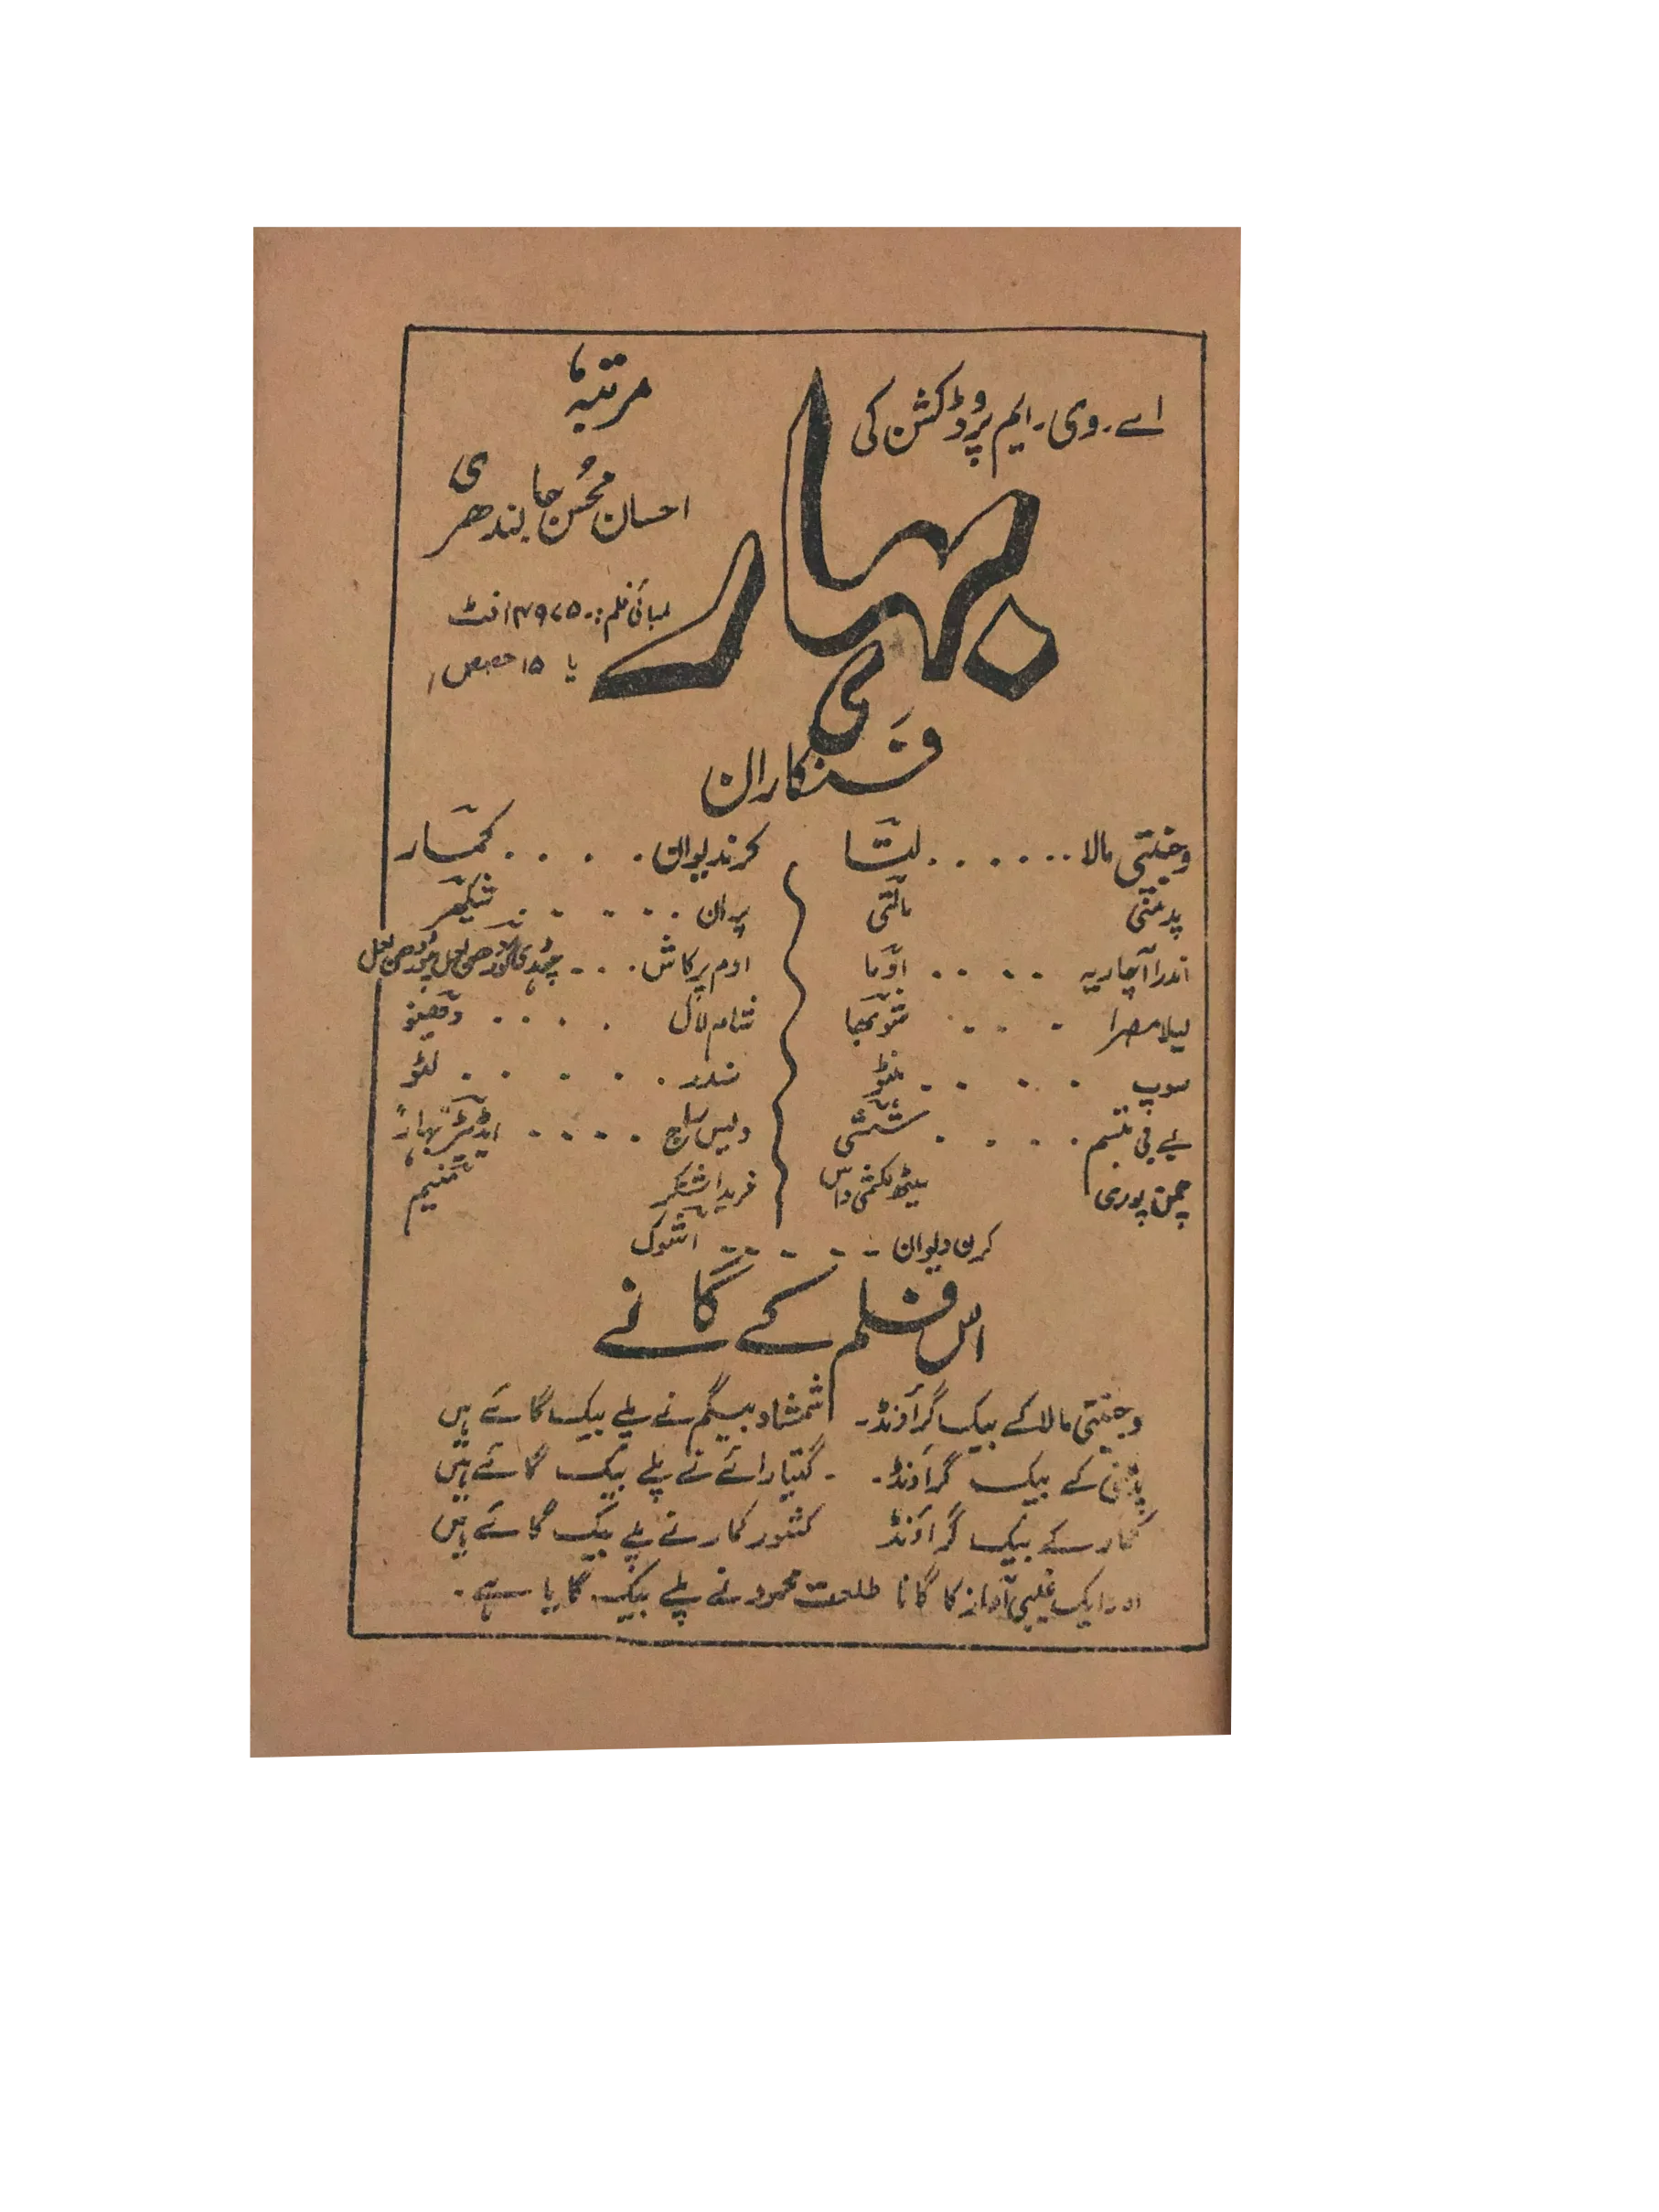 اے۔ وی۔ ایم پروڈکشن کی
بہار
مرتبہٗ
احسان محسن جالندھری
لمبائی فلم:۔ ۱۴۹۷۵ فٹ
یا ۱۵ حصص
کے
فنکاران
وجنتی مالا . . . . . . لتا
پدمنی مالتی
اندرا آچاریہ . . . . اوما
لیلا مصرا . . . . شوبھا
سوپ . . . . منٹو
بے بی تبسم . . . . ششی
چمن پوری سیٹھ لکشمی داس
کرن دیوان . . . . کمار
پران . . . . . شیکھر
اوم پرکاش . . . چوہدری
شام لال . . . .
سندر . . . . . لٹو
ولیس راج . . . . ایڈیٹر بہار
کرن دیوان . . . . . اشوک
اس فلم کے گانے
وجنتی مالا کے بیک گراؤنڈ۔ شمشاد بیگم نے پلے بیک گائے ہیں
پدمنی کے بیک گراؤنڈ۔ ۔ گیتا رائے نے پلے بیک گائے ہیں
کمار کے بیک گراؤنڈ کشور کمار نے پلے بیک گائے ہیں
اور ایک غیبی آواز کا گانا طلعت محمود نے پلے بیک گایا ہے۔